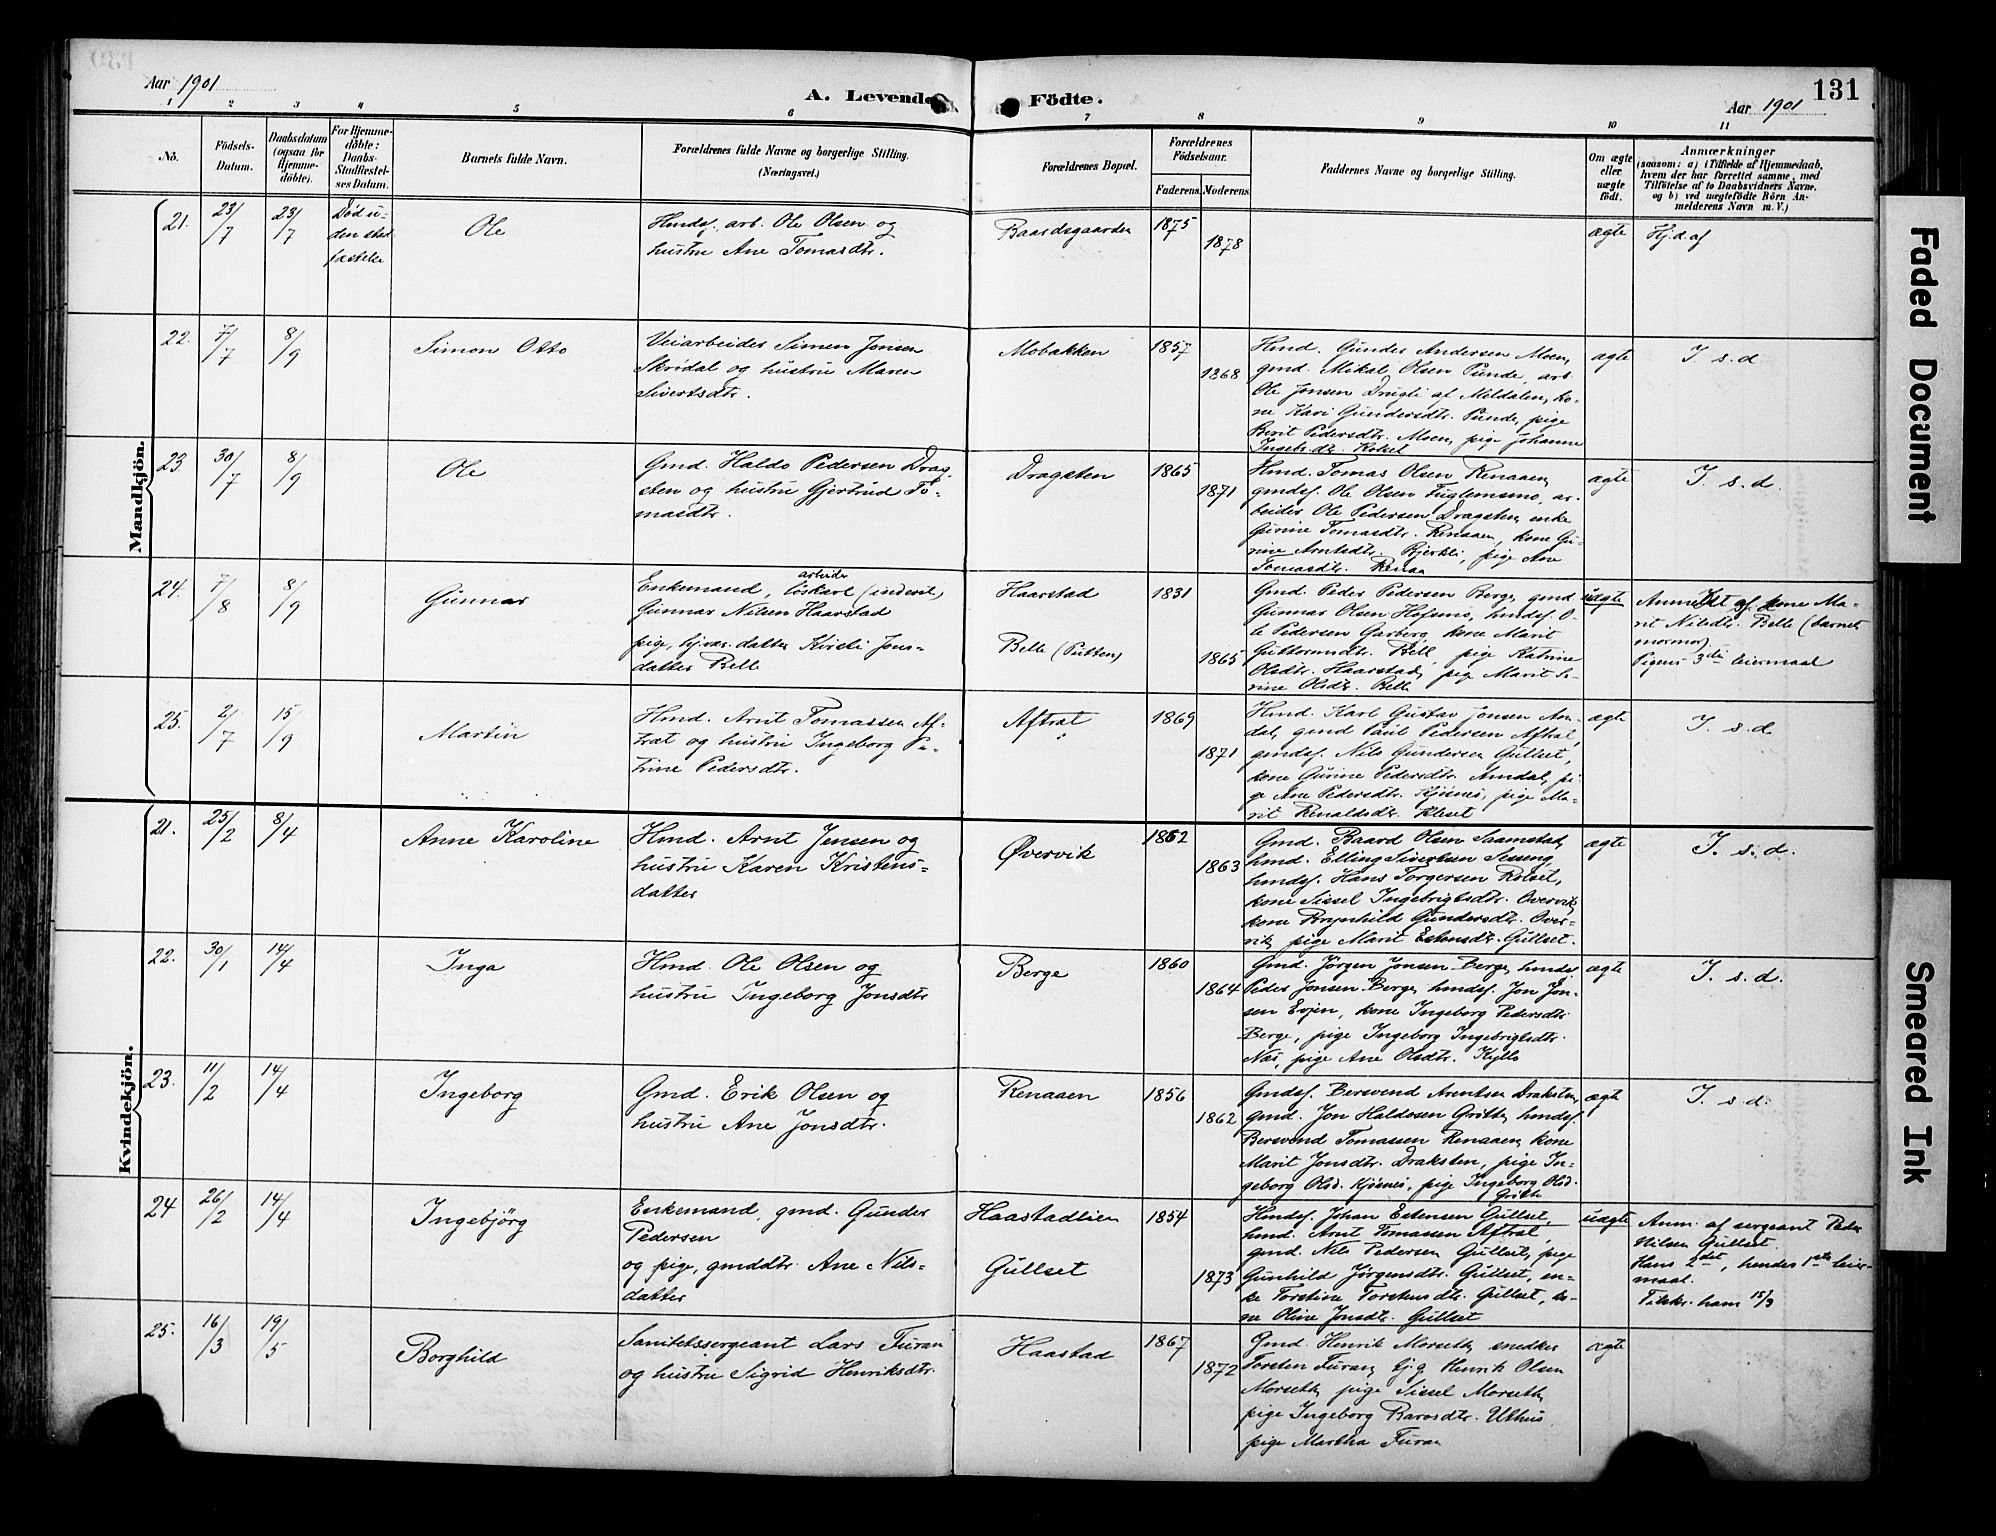 Aar 1901
A. Levende Födte.
Aar 1901
131
1 2 3 4 5 6 7 8 9 10 11
No.
Födsels-
Datum.
Daabsdatum
(ogsaa for
Hjemme-
döbte).
For Hjemme-
döbte:
Daabs-
Stadfæstel-
ses Datum.
Barnets fulde Navn.
Forældrenes fulde Navne og borgerlige Stilling.
(Næringsvei.)
Forældrenes Bopæl.
Forældrenes
Födselsaar.
Faderens. Moderens.
Faddernes Navne og borgerlige Stilling.
Om ægte
eller
uægte
födt.
Anmærkninger
(saasom: a) i Tilfælde af Hjemmedaab,
hvem der har forrettet samme, med
Tilföielse af to Daabsvidners Navne,
og b) ved uægtefödte Börn An-
melderens Navn m. V.)
Mandkjön.
21.
23/7
23/7
Död u-
den stad
fæstelse
Ole
Hmdsf. arb. Ole Olsen og
hustru Ane Tomasdtr.
Baardsgaarden
1875
1878
ægte
Hj.d. af
22.
7/7
8/9
Simon Otto
Veiarbeider Simen Jonsen
Skridal og hustru Maren
Sivertsdtr.
Mobakken
1857
1868
Hmd. Gunder Andersen Moen,
gmd. Mikal Olsen Punde, arb.
Ole Jonsen Drugli af Meldalen, ko-
ne Kari Gundersdtr. Punde, pige
Berit Pedersdtr. Moen, pige Johanne
Ingebr.dtr. Rolset
ægte
I. s. d.
23.
30/7
8/9
Ole
Gmd. Haldo Pedersen Drag-
sten og hustru Gjertrud To-
masdtr.
Dragsten
1865
1871
Hmd. Tomas Olsen Renaaen,
gmdsf. Ole Olsen Fuglemsmo, ar-
beider Ole Pedersen Dragsten, enke
Gurine Tomasdtr. Renaaen, kone Gu-
rine Arntsdtr. Bjerkli, pige Ane
Tomasdtr. Renaa
ægte
I. s. d.
24.
7/8
8/9
Gunnar
Enkemand, arbeider löskarl (inderst)
Gunnar Nilsen Haarstad
pige, hj.vær. datter Kirsti Jons-
datter Bell
Haarstad
Belle (Putten)
1831
1865
Gmd. Peder Pedersen Berge, gmd
Gunnar Olsen Hofsmo, hmdsf. O-
le Pedersen Garberg, kone Marit
Guttormsdtr. Bell, pige Katrine
Olsdtr. Haarstad, pige Marit Se-
rine Olsdtr. Bell
uægte
Anmeldt af kone Ma-
rit Nilsdtr. Belle (barnets
mormor)
Pigens 3die leiermaal
25.
2/7
15/9
Martin
Hmd. Arnt Tomassen Af-
trat og hustru Ingeborg Pe-
trine Pedersdtr.
Aftrat
1869
1871
Hmd. Karl Gustav Jonsen Am-
dal, gmd Paul Pedersen Aftrat,
gmdsf. Nils Gundersen Gullset,
kone Gurine Pedersdtr. Amdal, pi-
ge Ane Pedersdtr. Kjösnes, pige Ma-
rit Renaldsdtr. Klset
ægte
I. s. d.
Kvindekjön.
21.
25/2
8/4
Anne Karoline
Hmd. Arnt Jensen og
hustru Karen Kristens-
datter
Øvervik
1862
1863
Gmd. Baard Olsen Saamstad,
hmd. Elling Sivertsen Sesseng,
hmdsf. Hans Torgersen Rolset,
kone Sissel Ingebrigtsdtr. Overvik,
kone Brynhild Gundersdtr. Over-
vik, pige Marit Estensdtr. Gullset.
ægte
I. s. d.
22.
30/1
14/4
Inga
Hmd. Ole Olsen og
hustru Ingeborg Jonsdtr
Berge
1860
1864
Gmd. Jörgen Jonsen Berge, hmdsf
Peder Jonsen Berge, hmdsf. Jon Jon-
sen Evjen, kone Ingeborg Pedersdtr.
Berge, pige Ingeborg Ingebrigtsdtr.
Næs, pige Ane Olsdtr. Kyllo
ægte
I. s. d.
23.
11/2
14/4
Ingeborg
Gmd. Erik Olsen og
hustru Ane Jonsdtr.
Renaaen
1856
1862
Gmdsf. Bersvend Arentsen Draksten,
gmd. Jon Haldosen Grötte, hmdsf.
Bersvend Tomassen Renaaen, kone
Marit Jonsdtr. Draksten, pige In-
geborg Olsd. Kjösnes, pige Ingeborg Olsd.
Grötte
ægte
I. s. d.
24
26/2
14/4
Ingebjörg
Enkemand, gmd. Gunder
Pedersen
og pige, gmddtr. Ane Nils-
datter
Haastadlien
Gullset
1854
1873
Hmdsf. Johan Estensen Gullset,
hmd. Arnt Tomassen Aftrat,
gmd. Nils Pedersen Gullset, pige
Gunhild Jörgensdtr. Gullset, en-
ke Torstine Torstensdtr. Gullset, ko-
ne Oline Jonsdtr. Gullset
uægte
Anm. af sergeant Peder
Nilsen Gullset.
Hans 2det, hendes 1ste leier-
maal.
Tilskr. ham 15/3
25.
16/3
19/5
Borghild
Sanitetssergeant Lars Furan
og hustru Sigrid Henriksdtr.
Haastad
1867
1872
Gmd. Henrik Morseth, snedker
Torsten Furan, hj.g. Henrik Olsen
Morseth, pige Sissel Morseth,
pige Ingeborg Barosdtr. Uthus
pige Martha Furan
ægte
Faded Document
Smeared Ink